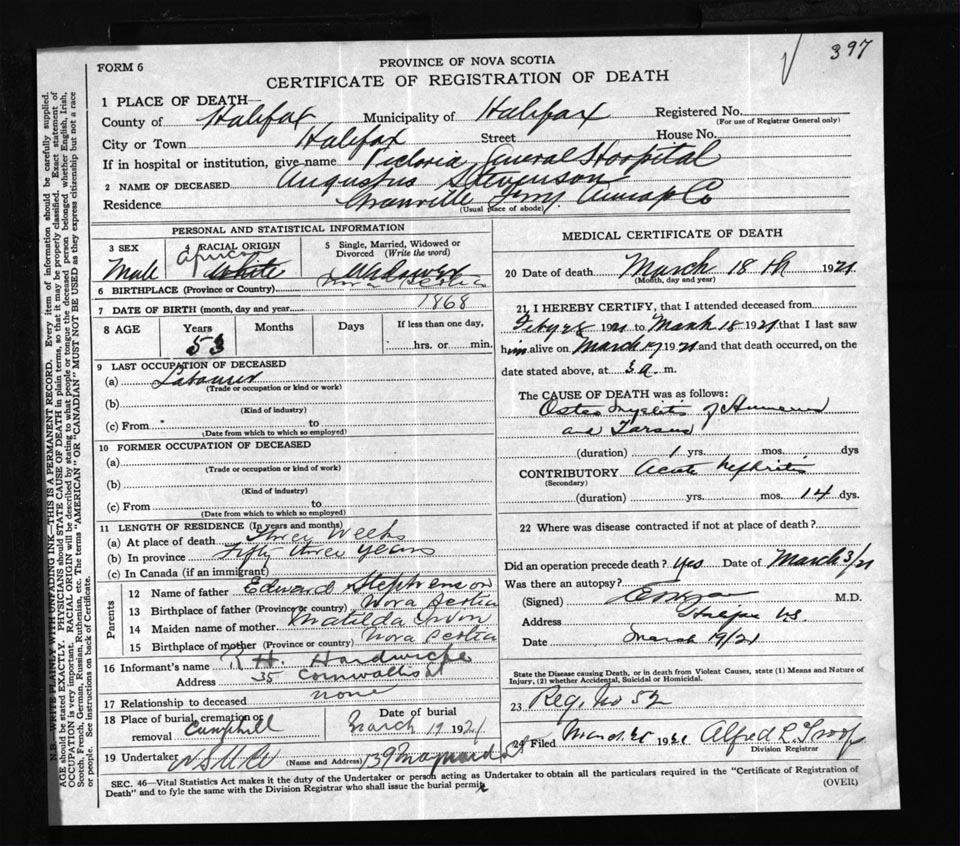 397
FORM 6
PROVINCE OF NOVA SCOTIA
CERTIFICATE OF REGISTRATION OF DEATH
1 PLACE OF DEATH—
County of Halifax Municipality of Halifax Registered No.
(For use of Registrar General only)
City or Town Halifax Street House No.
If in hospital or institution, give name Victoria General Hospital
2 NAME OF DECEASED Augustus Stevenson
Residence Granville Ferry Annap Co
(Usual place of abode)
PERSONAL AND STATISTICAL INFORMATION
3 SEX 4 RACIAL ORIGIN 5 Single, Married, Widowed or
Divorced (Write the word)
Male African White Widower
6 BIRTHPLACE (Province or Country) Nova Scotia
7 DATE OF BIRTH (month, day and year) 1868
8 AGE Years Months Days If less than one day,
53 hrs. or min.
9 LAST OCCUPATION OF DECEASED
(a) Labourer
(Trade or occupation or kind or work)
(b)
(Kind of industry)
(c) From to
(Date from which to which so employed)
10 FORMER OCCUPATION OF DECEASED
(a)
(Trade or occupation or kind of work)
(b)
(Kind of industry)
(c) From to
(Date from which to which so employed)
11 LENGTH OF RESIDENCE (In years and months)
(a) At place of death Three Weeks
(b) In province Fifty three years
(c) In Canada (if an immigrant)
Parents
12 Name of father Edward Stephenson
13 Birthplace of father (Province or country) Nova Scotia
14 Maiden name of mother Matilda
15 Birthplace of mother (Province or country) Nova Scotia
16 Informant's name R. H. Hardwicke
Address 35 Cornwallis St
17 Relationship to deceased none
18 Place of burial, cremation or removal Camphill Date of burial March 19 1921
19 Undertaker (Name and Address) 139 Maynard St
MEDICAL CERTIFICATE OF DEATH
20 Date of death March 18th 1921
(Month, day and year)
21 I HEREBY CERTIFY, that I attended deceased from
Feby 28 1921 to March 18 1921 that I last saw
him alive on March 17 1921 and that death occurred, on the
date stated above, at 3 a. m.
The CAUSE OF DEATH was as follows:
Osteo Myelitis of Humerus
and Tarsus
(duration) 1 yrs. mos. dys
CONTRIBUTORY Acute Nephritis
(Secondary)
(duration) yrs. mos. 14 dys.
22 Where was disease contracted if not at place of death?
Did an operation precede death? Yes Date of March 3/21
Was there an autopsy?
(Signed) M.D.
Address Halifax NS
Date March 19/21
State the Disease causing Death, or in death from Violent Causes, state (1) Means and Nature of
Injury, (2) whether Accidental, Suicidal or Homicidal.
23 Reg. No 52
24 Filed 1921 Alfred R. Troop
Division Registrar
SEC. 46—Vital Statistics Act makes it the duty of the Undertaker or person acting as Undertaker to obtain all the particulars required in the "Certificate of Registration of
Death" and to fyle the same with the Division Registrar who shall issue the burial permit (OVER)
N.B.—WRITE PLAINLY WITH UNFADING INK—THIS IS A PERMANENT RECORD. Every item of information should be carefully supplied.
AGE should be stated EXACTLY. PHYSICIANS should STATE CAUSE OF DEATH in plain terms, so that it may be properly classified. Exact statement of
OCCUPATION is very important. RACIAL ORIGIN will be described by stating to what people or tongue the deceased person belonged whether English, Irish,
Scotch, French, German, Russian, Ruthenian, etc. The terms "AMERICAN" OR "CANADIAN" MUST NOT BE USED as they express citizenship but not a race
or people. See instructions on back of Certificate.